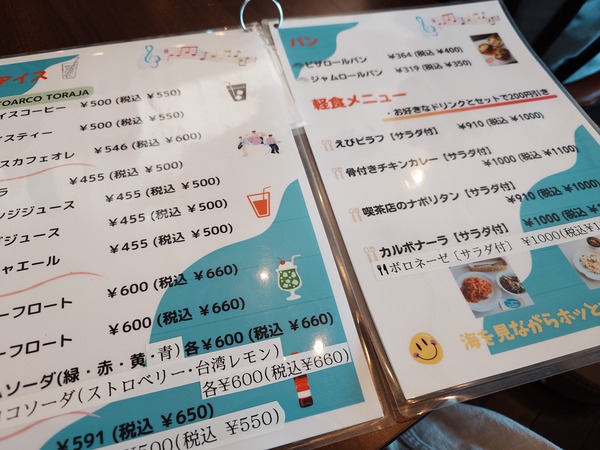 アイス
TOARCO TORAJA
イスコーヒー ¥500 (税込 ¥550)
イスティー ¥500 (税込 ¥550)
スカフェオレ ¥546 (税込 ¥600)
ラ ¥455 (税込 ¥500)
ンジジュース ¥455 (税込 ¥500)
ジュース ¥455 (税込 ¥500)
ャエール
ーフロート ¥600 (税込 ¥660)
ーフロート ¥600 (税込 ¥660)
ソーダ(緑・赤・黄・青) 各¥600 (税込 ¥660)
コソーダ(ストロベリー・台湾レモン) 各¥600(税込¥660)
¥591 (税込 ¥650)
¥500(税込 ¥550)
パン
ピザロールパン ¥364 (税込 ¥400)
ジャムロールパン ¥319 (税込 ¥350)
軽食メニュー
・お好きなドリンクとセットで200円引き
えびピラフ【サラダ付】 ¥910 (税込 ¥1000)
骨付きチキンカレー【サラダ付】 ¥1000 (税込 ¥1100)
喫茶店のナポリタン【サラダ付】 ¥910 (税込 ¥1000)
カルボナーラ【サラダ付】 ¥1000 (税込
ボロネーゼ〔サラダ付〕 ¥1000(税込
海を見ながらホッと